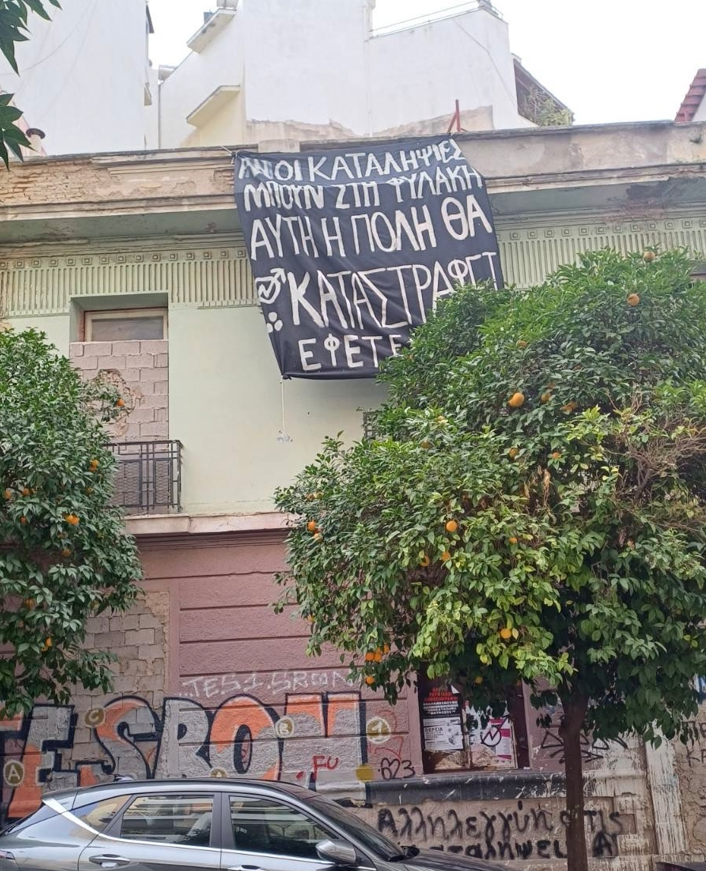 ΑΝ ΟΙ ΚΑΤΑΛΗΨΙΕΣ
ΜΠΟΥΝ ΣΤΗ ΦΥΛΑΚΗ
ΑΥΤΗ Η ΠΟΛΗ ΘΑ
ΚΑΤΑΣΤΡΑΦΕΙ
ΕΦΕΤΕ
TEST.SBOM
TESBOM
FU
823
Αλληλεγγύη στις
καταλήψεις Α